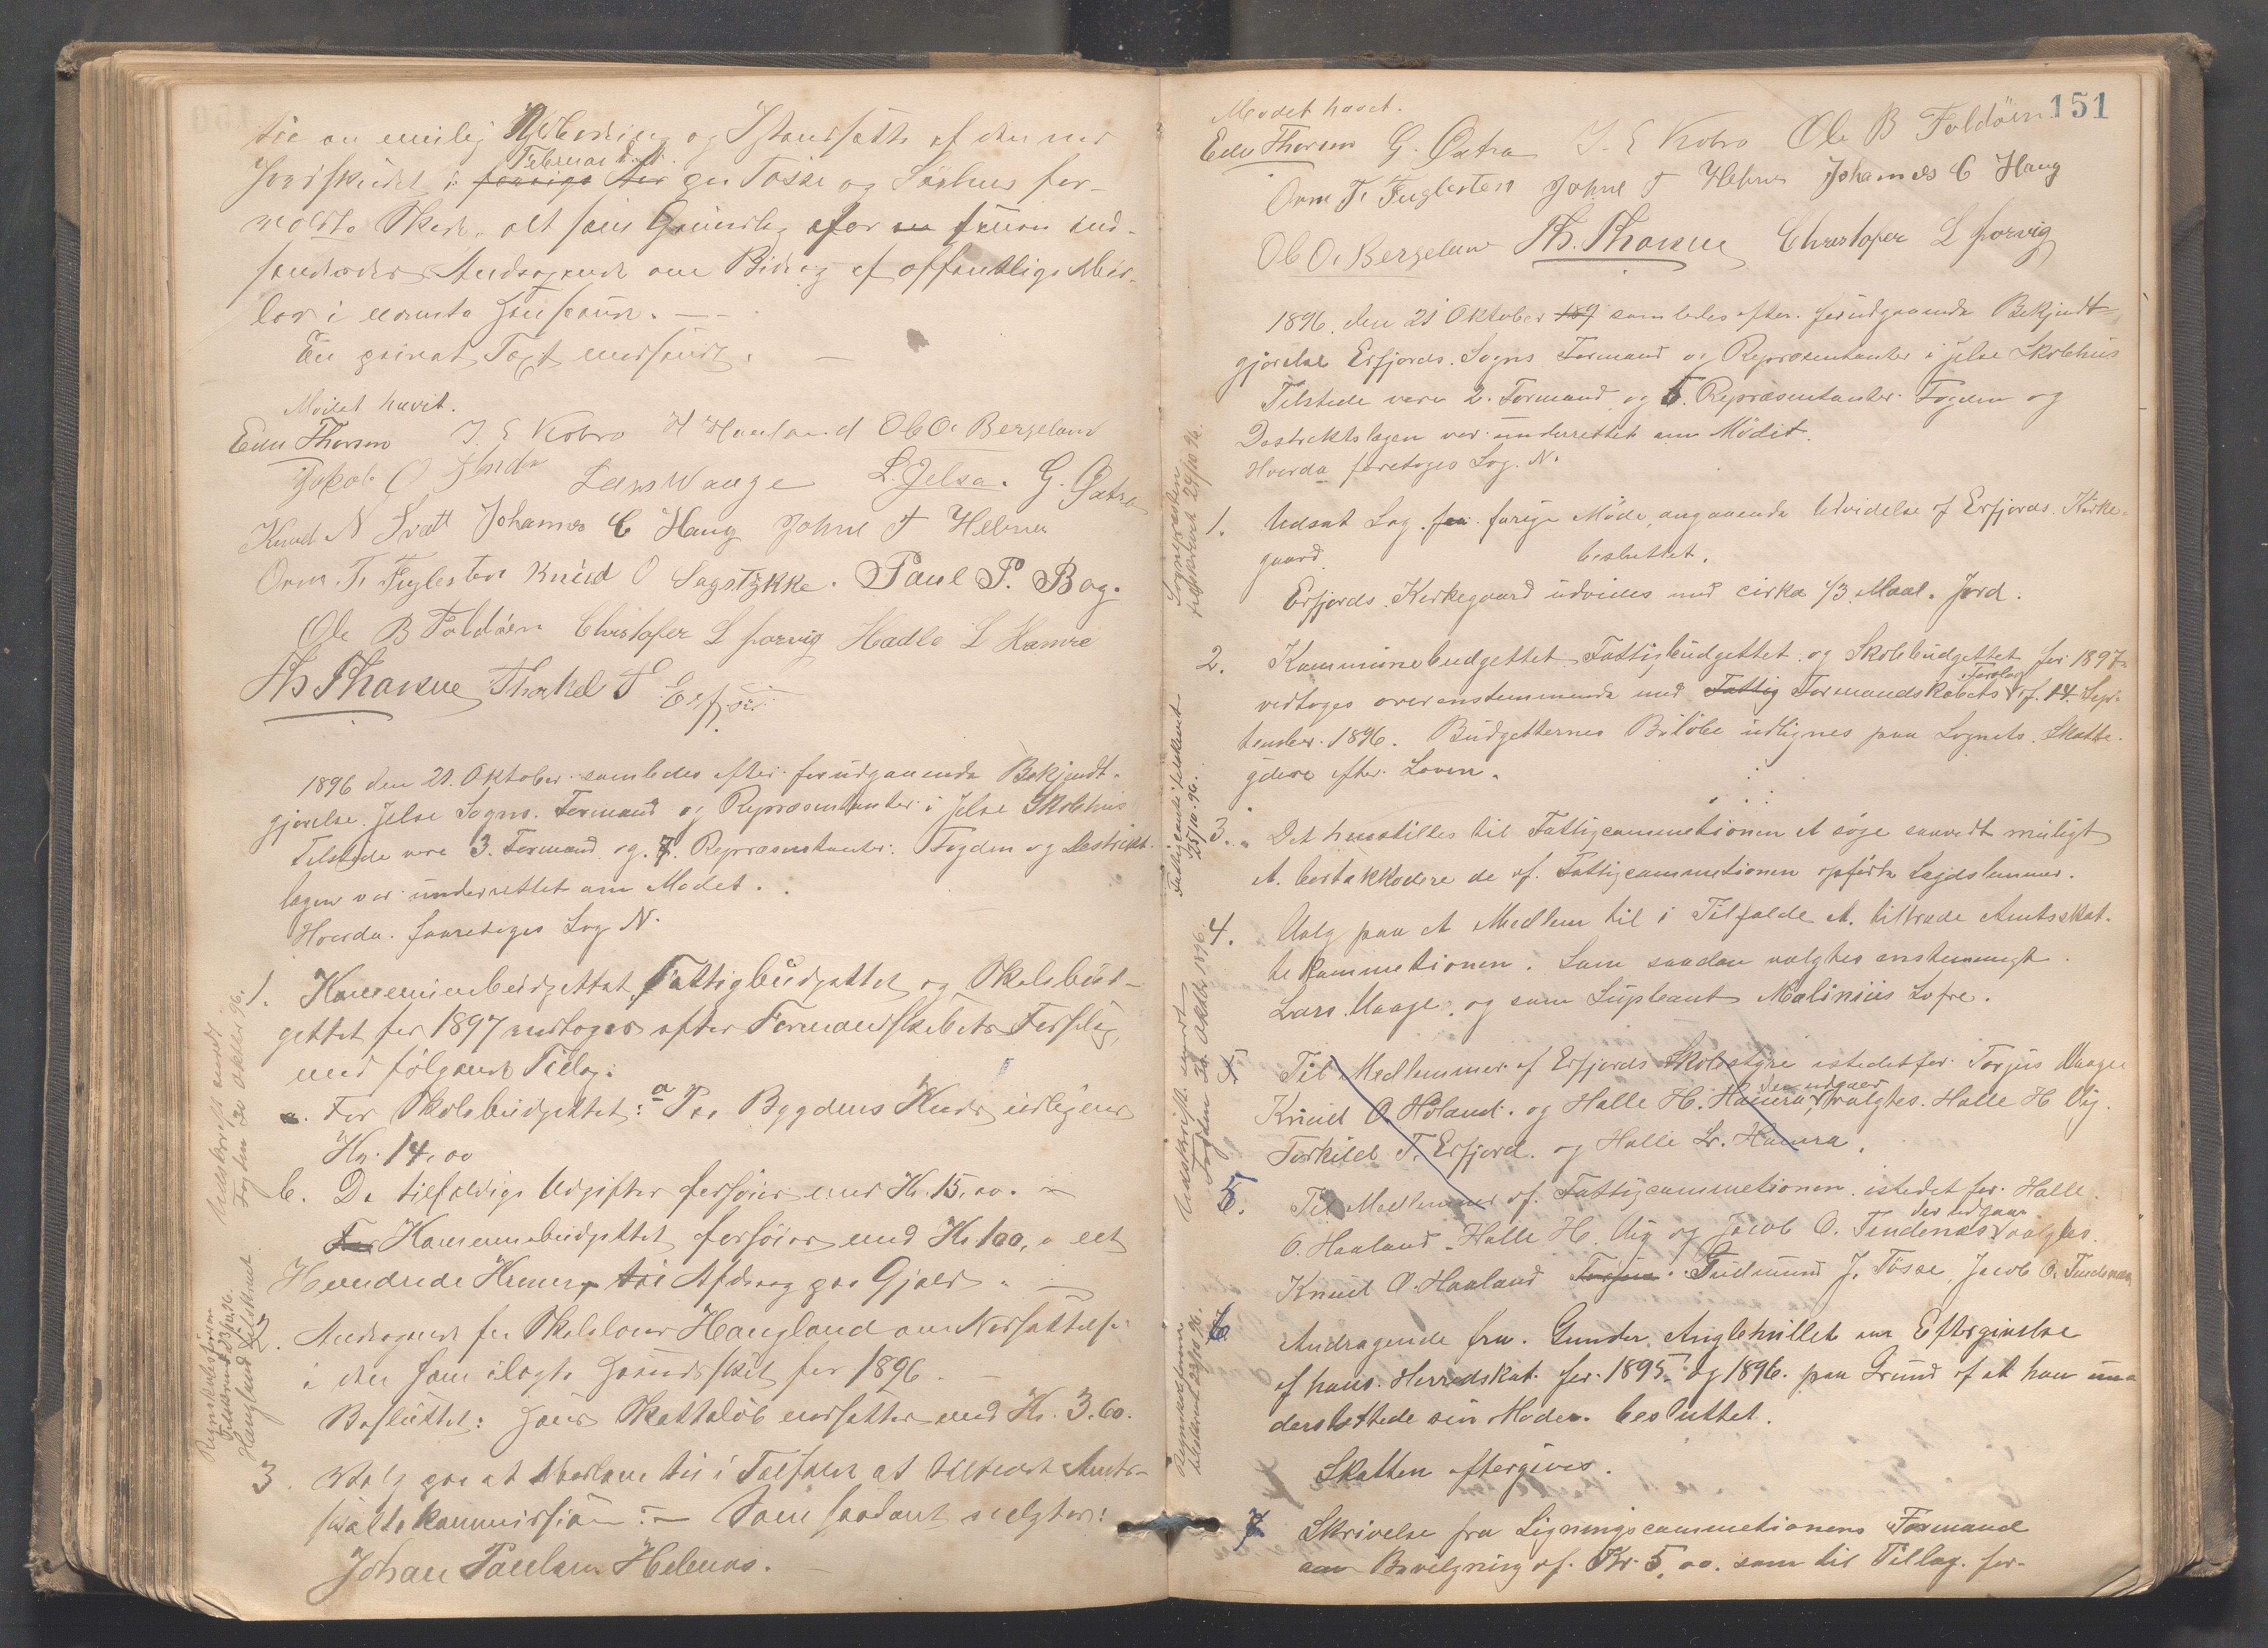 til en
Jordskredet i Februar d. A. paa Tøsse og Sørhus for-
voldte Skade, alt som Grundlag for en senere ind-
sendende Andragende om Bidrag af offentlige Mid-
ler i nævnte Henseende.
En privat Taxt
Mødet hævet.
Edu Thorsen J. E. Kobro H Haaland Ole O. Bergeland
Jakob O Lars Waage L. Jelsa. G. Østra
Knud N Tvedt Johannes C Haug Johne T Helnæs
Orm T. Fuglesten Knud O Sagstykke. Paul P. Bog.
Ole B Foldøen Christofer L Horvig Hadle L Hamre
Th Thorsen Thorkel T Erfjor
1896 den 21. Oktober samledes efter forudgaaende Bekjendt-
gjørelse Jelse Sogns Formænd og Repræsentanter i Jelse Skolehus
Tilstede vare 3. Formænd og 7. Repræsentanter. Fogden og Destrikts-
lægen var underrettet om Mødet.
Hvorda foretoges Sag N.
1. Kommunebudgettet, Fattigbudgettet og Skolebud-
gettet for 1897 vedtoges efter Formandskabets Forslag,
med følgende Tillæg:
a. For Skolebudgettet: a Paa Bygdens Kreds udlignes
Kr. 14,00
b. De tilfældige Udgifter forhøies med Kr. 15,00.
For Kommunebudgettet forhøies med Kr 100, et
Hundrede Kroner, til Afdrag paa Gjæld.
2. Andragende fra Skolelærer Haugland om Nedsættelse
i den ham ilagte Herredsskat for 1896.
Besluttet: Hans Skatteløb nedsættes med Kr. 3.60.
3. Valg paa et Medlem til i Tilfælde at tiltræde Amts-
skattekommissionen. Som saadant valgtes:
Johan Paulsen Helnæs.
Udskrift sendt
Fogden 30 Oktbr 96.
Regnskabsføreren
Tilstilet 23/10 96.
Haugland tilskrevet
151
Mødet hævet.
Edu Thorsen G. Østra J. E Kobro Ole B Foldøen
Orm T. Fuglesten Johne T Helnæs Johannes C Haug
Ole O. Bergeland Th. Thorsen Christofer L Horvig
1896. den 21 Oktober 189 samledes efter forudgaaende Bekjendt-
gjørelse Erfjords Sogns Formænd og Repræsentanter i Jelse Skolehus
Tilstede vare 2. Formænd og 5. Repræsentanter. Fogden og
Destriktslægen var underrettet om Mødet.
Hvorda foretoges Sag. N.
1. Udsat Sag fra forige Møde, angaaende Udvidelse af Erfjords Kirke-
gaard. besluttet.
Erfjords Kirkegaard udvides med cirka 1/3 Maal. Jord.
2. Kommunebudgettet Fattigbudgettet og Skolebudgettet for 1897
vedtoges overenstemmende med Fattig Formandskabets Forslag af 14. Sep-
tember 1896. Budgetternes Beløbe udlignes paa Sognets Skatte-
ydere efter Loven.
3. Det henstilles til Fattigcommetionen at søge saavidt muligt
at bortakkodere de af Fattigcommetionen opførte Legdslemmer.
4. Valg paa et Medlem til i Tilfælde at tiltræde Amtsskat-
tekommetionen. Som saadan valgtes enstemmigt
Lars Vaage, og som Supleant Malinius Lofre.
5 Til Medlemmer af Erfjords Skolestyre istedetfor Torjus Vaage
Knud O. Høland og Halle H. Hamra, der udgaaer valgtes. Halle H Vig
Torkild T. Erfjord og Halle L. Hamra.
5. Til Medlemmer af Fattigcommetionen istedet for Halle
O. Haaland, Halle H. Vig og Jacob O. Tendenæs der udgaar valgtes.
Knud O. Haaland Torjus Gudmund J. Tøsse, Jacob O. Tendenæs
6 Andragende fra Gunder Anglehullet om Eftergivelse
af hans Herredskat for 1895 og 1896. paa Grund af at han un-
derstøttede sin Moder. besluttet.
Skatten eftergives.
7 Skrivelse fra Ligningscommetionens Formand
om Bevilgning af Kr 5,00. som til Tillæg for-
Sognepresten
29/10 96.
Fattigcom tilskrevet
25/10 96.
Udskrift sendt
Fogden 30 Oktbr 1896.
Regnskabsføreren
tilskrevet 23/10 96.